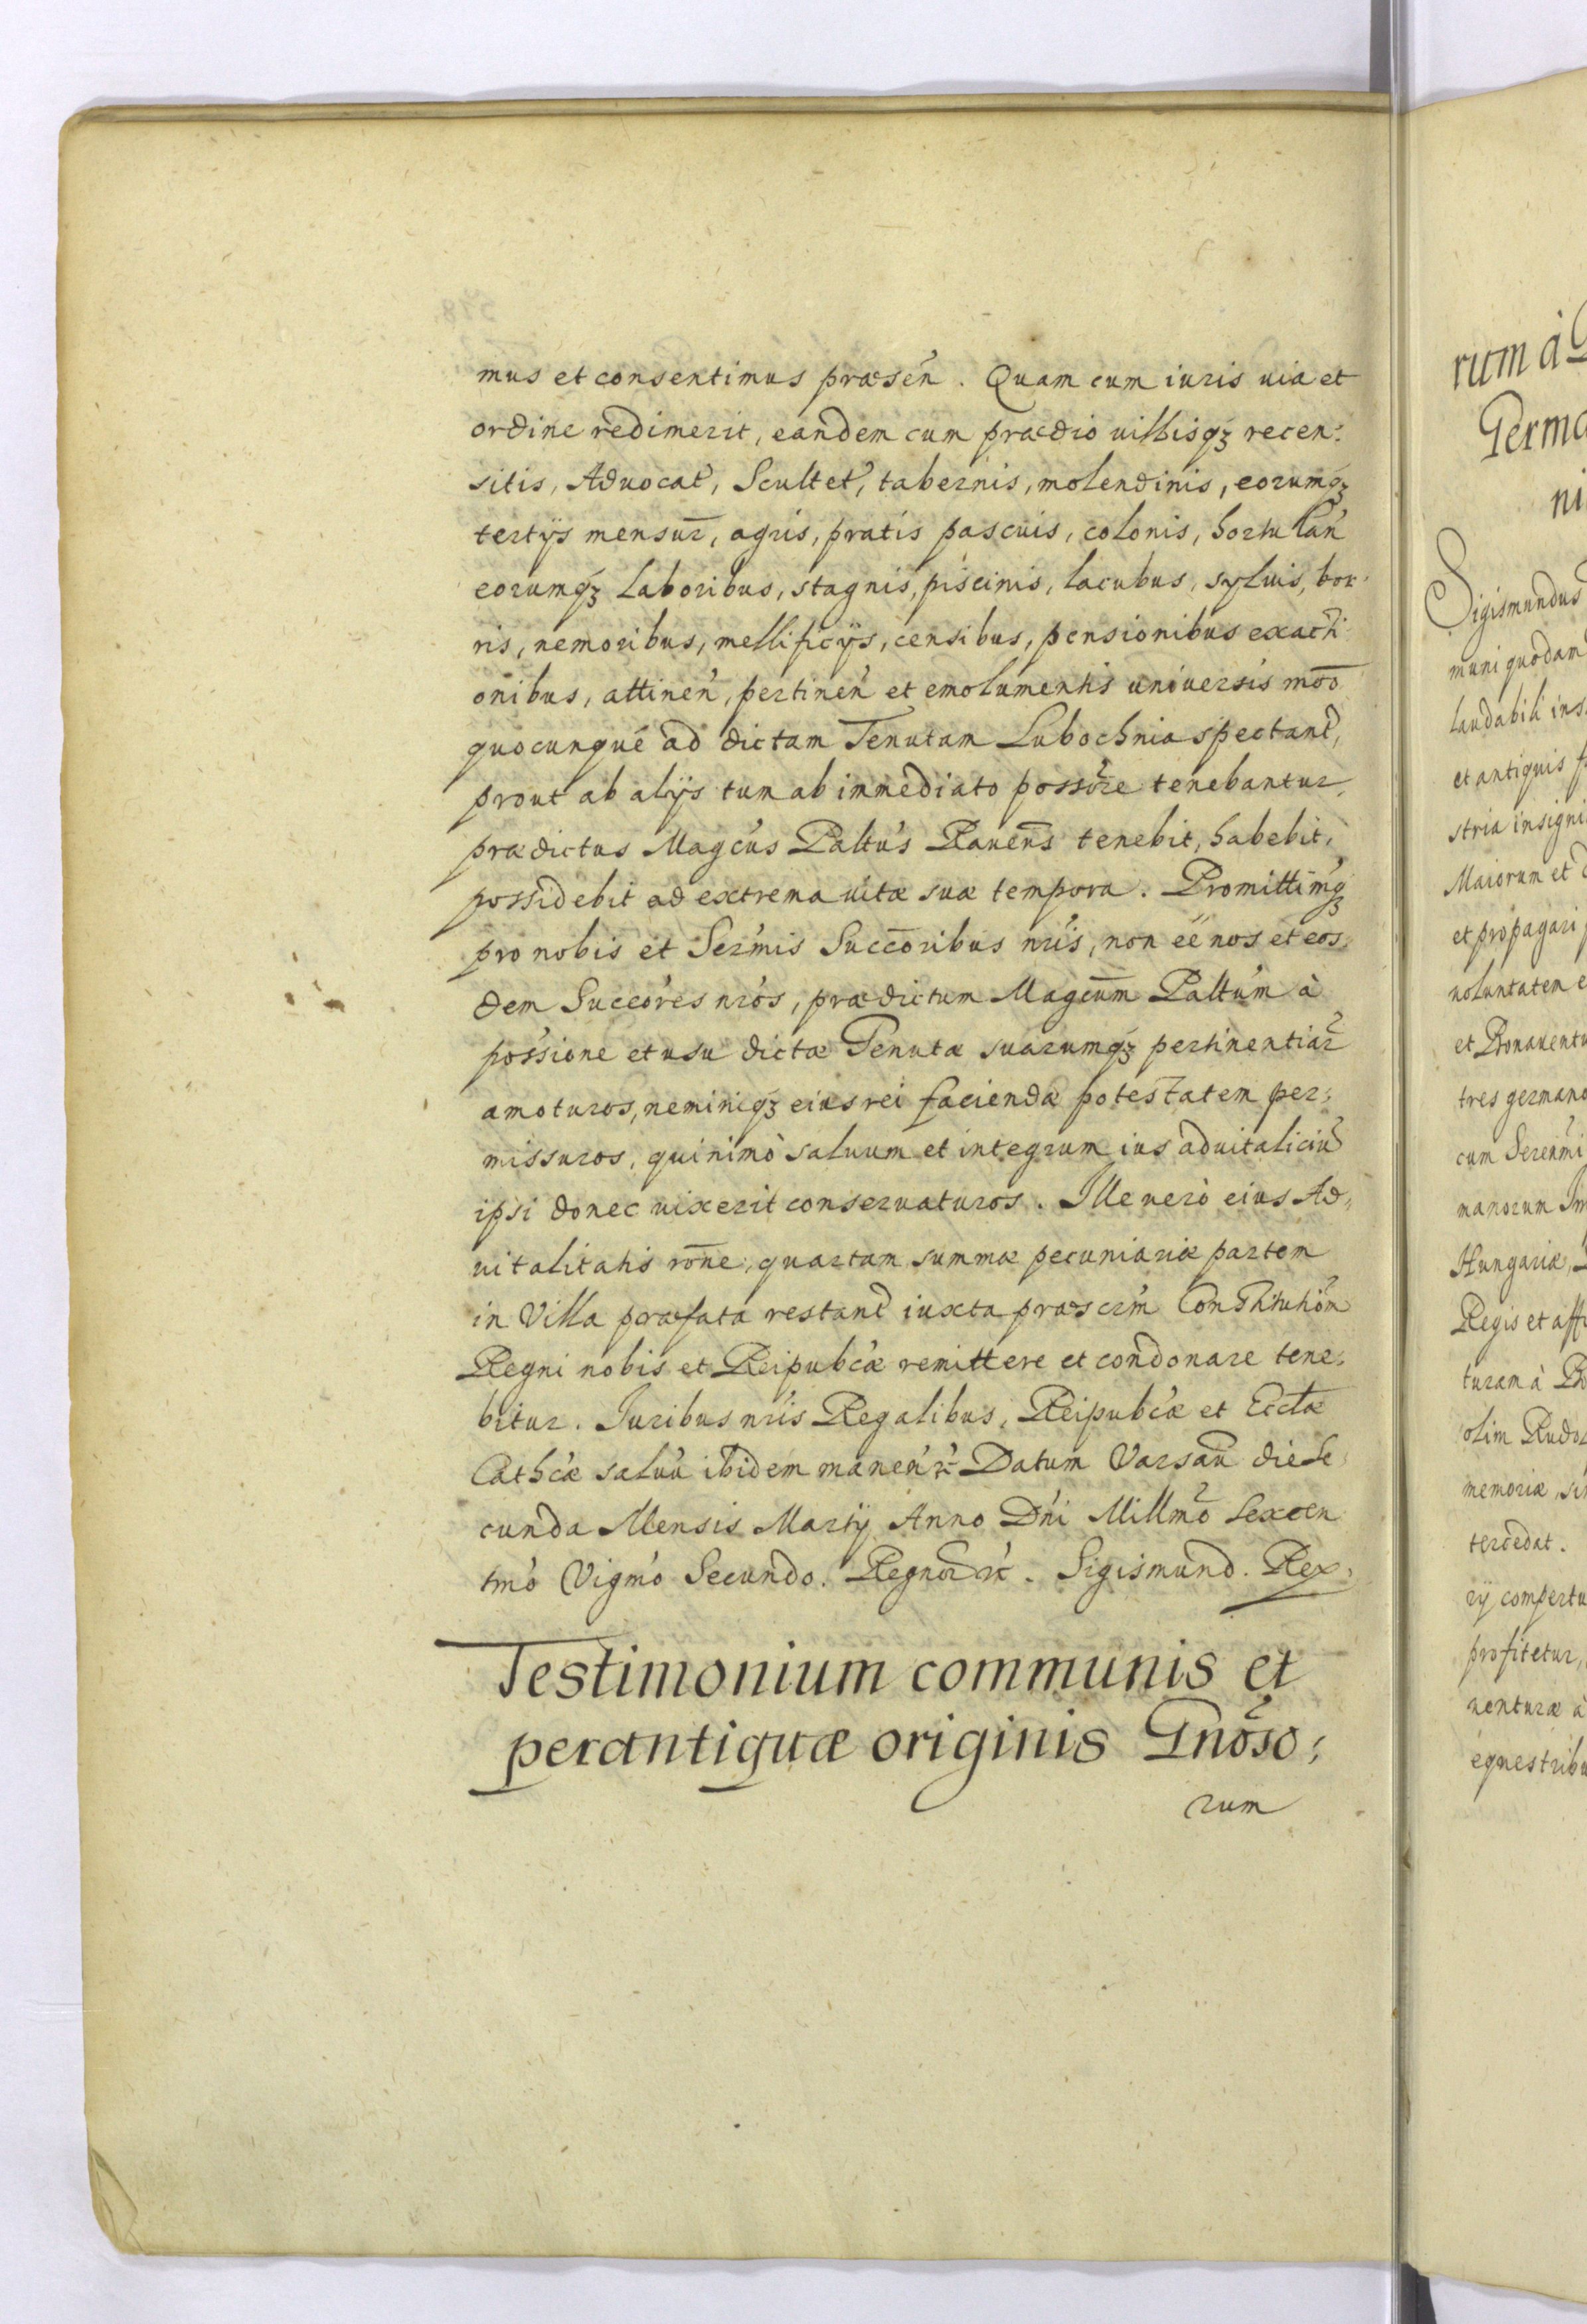 mus et consentimus præsen̄. Quam cum iuris uia et
ordine redimerit, eandem cum prædio uillisqꝫ recen:
sitis, Aduocat', Scultet', tabernis, molendinis, eorumqꝫ
tertÿs mensur̄, agris, pratis pascuis, colonis, hortulan'
eorumqꝫ laboribus, stagnis, piscinis, lacubus, syluis, bor:
ris, nemoribus, mellificÿs, censibus, pensionibus exacti:
onibus, attinen', pertinen' et emolumentis uniuersis mōō
quocunqué ad dictam Tenutam Lubochnia spectant,
prout ab alÿs tum ab immediato possōre tenebantur,
prædictus Magcus Paltus Rauens̄ tenebit, habebit,
possidebit ad extrema uitæ suæ tempora. Promittimqꝫ
pro nobis et Ser'mis Succoribus nr'is, non ēē nos et eos:
dem Succores nros, prædictum Magcum Paltum à
possione et usu dictæ Tenutæ suarumqꝫ pertinentiar̄
amoturos, neminiqꝫ eius rei faciendæ potestatem per:
missuros, quinimò saluum et integrum ius aduitaliciū
ipsi donec uixerit conseruaturos. Ille uerò eius Ad:
uitalitatis rōne, quartam summæ pecuniariæ partem
in Villa præfata restant iuxta præscr'm Constitution̄
Regni nobis et Reipubcæ remittere et condonare tene:
bitur. Iuribus nr'is Regalibus, Reipubcæ et Ecclæ
Cathcæ saluū ibidem manen' &c Datum Varsau die Se:
cunda Mensis Martÿ Anno Dn'i Millmo sexcen
tmo Vigmo Secundo. Regnor &c. Sigismund. Rex.
Testimonium communis et
perantiquæ originis Gnoso:
rum
rum à
Germa
ni
Sigismundus
muni quodam
laudabili ins
et antiquis
stria insigni
Maiorum et
et propagari
uoluntatem e
et Bonauentu
tres germano
cum Serenmi
manorum Im
Hungariæ,
Regis et affi
turam à
olim Rudol
memoriæ, si
tercedat.
rÿ compertu
profitetur,
uenturæ à
equestribu